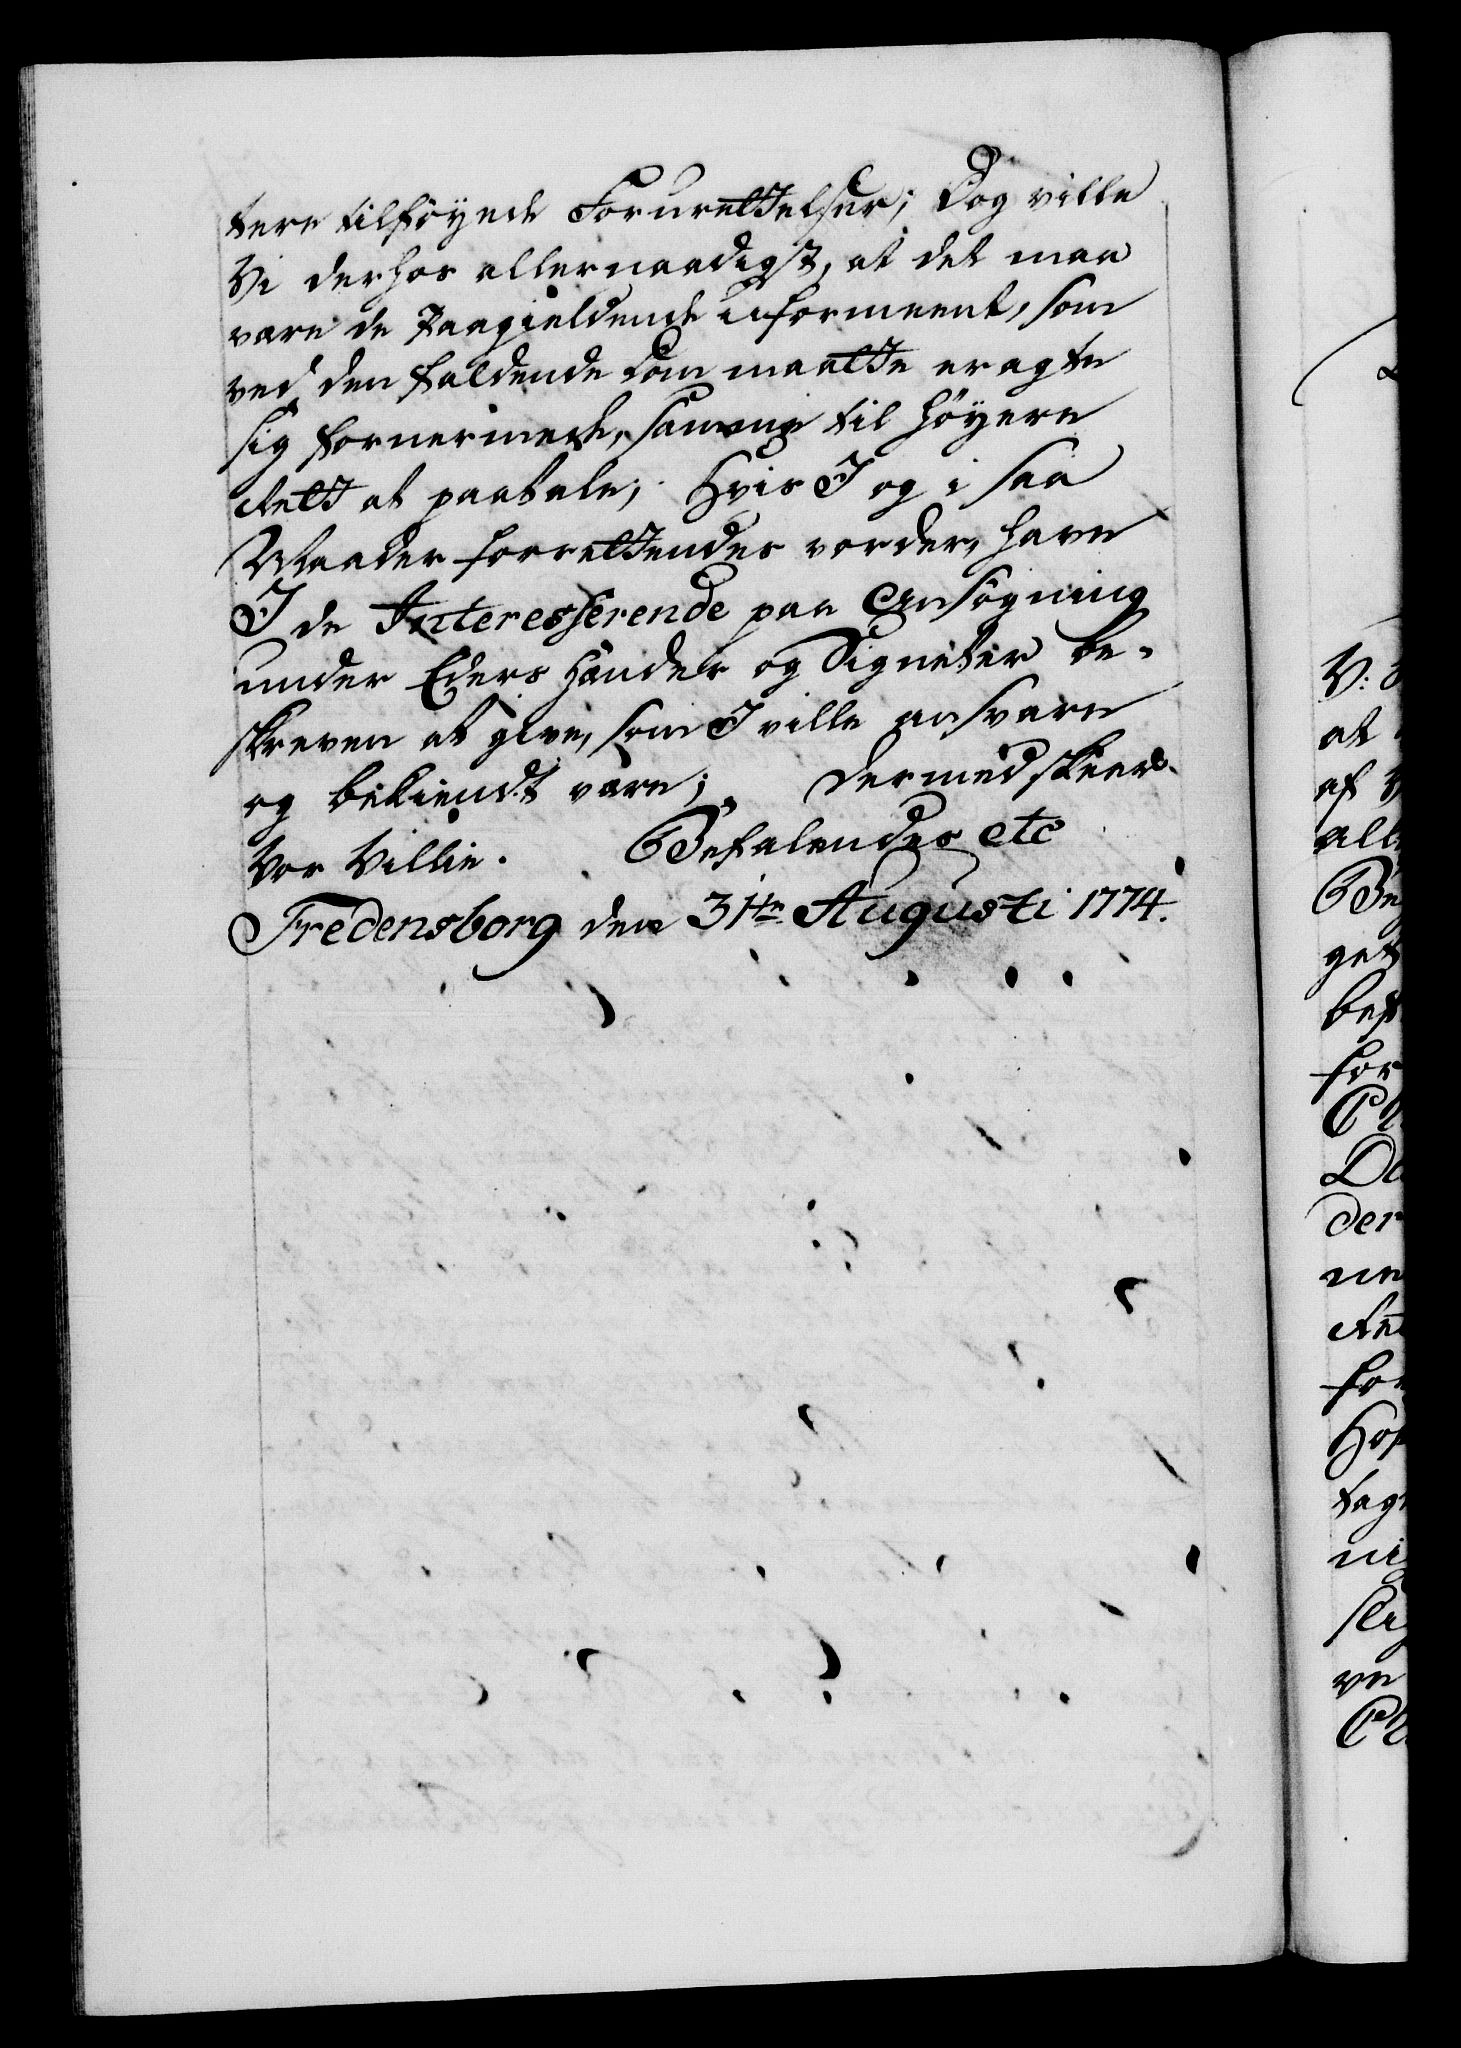 tere tilföyede Forurettelser; Dog ville
Vi derhos allernaadigst, at det maa
være de Paagieldende uformeent, som
ved den faldende Dom maatte eragte
sig fornermede, samme til höyere
Rett at paatale; Hvis I og i saa
Maader forrettendes vorder, have
I de Interesserende paa Ansögning
under Eders Hænder og Signeter be-
skreven at give, som I ville ansvare
og bekiendt være; Dermed skeer
Vor Villie. Befalendes etc
Fredensborg den 31te Augusti 1774.
V:
at
af
all
Be
get
bef
for
Ch
Da
der
ne
Re
for
Hof
tag
ni
sli
ve
Ch